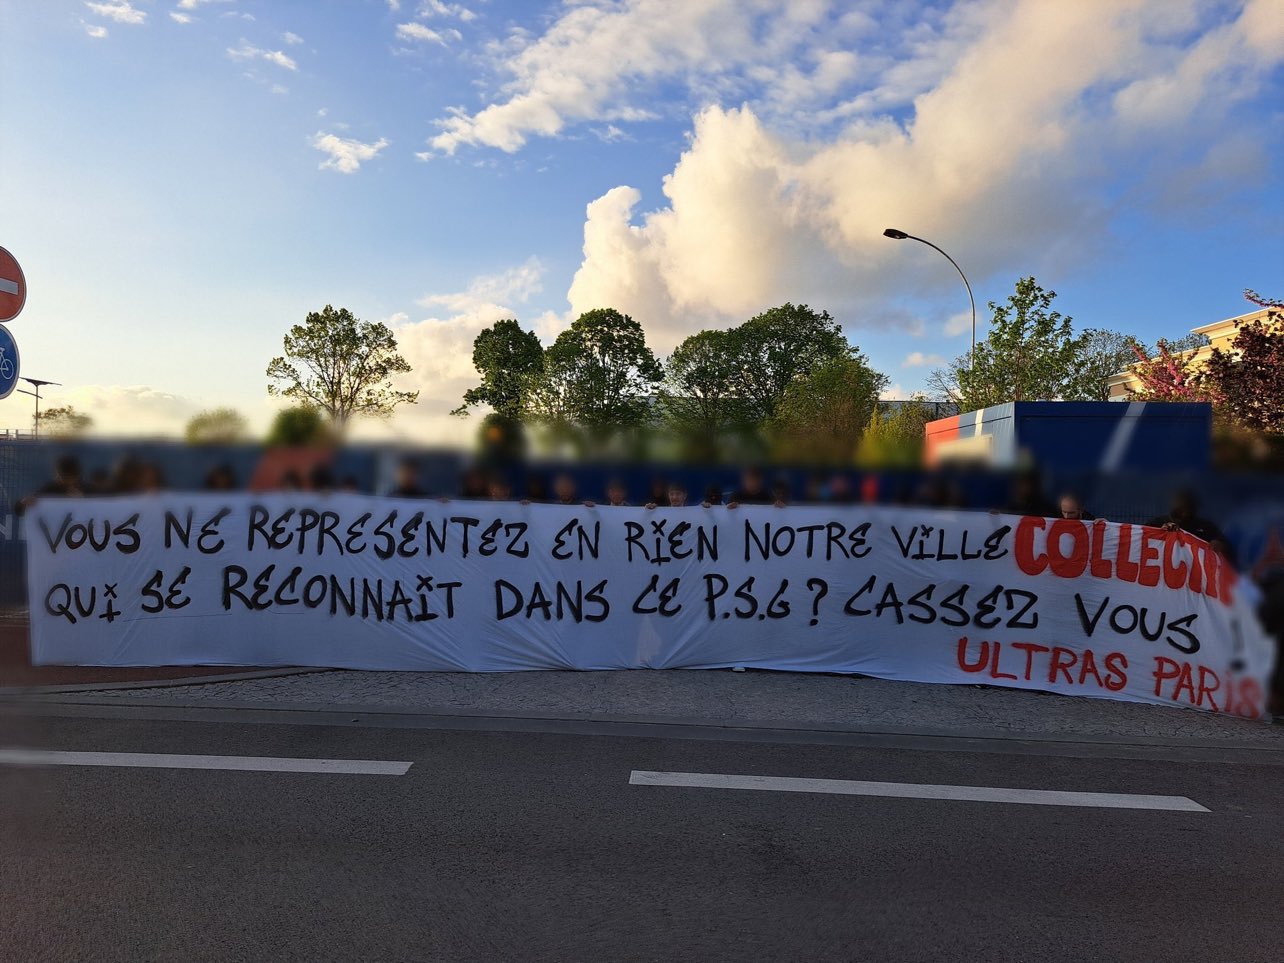 VOUS NE REPRESENTEZ EN RIEN NOTRE ViLLE
QUi SE RECONNAÎT DANS CE P.S.G ? CASSEZ VOUS
COLLECTIF
ULTRAS PARIS